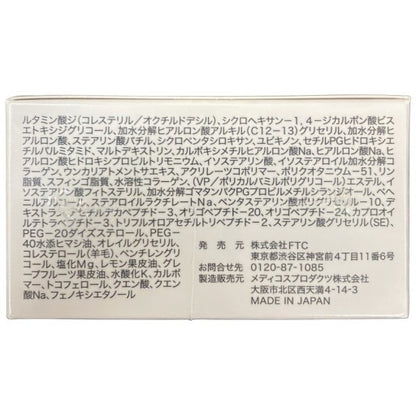 ルタミン酸ジ(コレステリル/オクチルドデシル)、シクロヘキサン-1, 4-ジカルボン酸ビス
エトキシジグリコール、加水分解ヒアルロン酸アルキル(C12-13)グリセリル、加水分解ヒ
アルロン酸、ステアリン酸バチル、シクロペンタシロキサン、ユビキノン、セチルPGヒドロキシエ
チルパルミタミド、マルトデキストリン、カルボキシメチルヒアルロン酸Na、ヒアルロン酸Na、ヒ
アルロン酸ヒドロキシプロピルトリモニウム、イソステアリン酸、イソステアロイル加水分解コ
ラーゲン、ウンカリアトメントサエキス、アクリレーツコポリマー、ポリクオタニウム-51、リン
脂質、スフィンゴ脂質、水溶性コラーゲン、(VP/ポリカルバミルポリグリコール)エステル、イ
ソステアリン酸フィトステリル、加水分解ゴマタンパクPGプロピルメチルシランジオール、ベヘ
ニルアルコール、ステアロイルラクチレートNa、ペンタステアリン酸ポリグリセリル-10、デ
キストラン、アセチルデカペプチド-3、オリゴペプチド-20、オリゴペプチド-24、カプロオイ
ルテトラペプチド-3、トリフルオロアセチルトリペプチド-2、ステアリン酸グリセリル(SE)、
PEG-20ダイズステロール、PEG-
40水添ヒマシ油、オレイルグリセリル、
コレステロール(羊毛)、ペンチレングリ
コール、塩化Mg、レモン果皮油、グレ
ープフルーツ果皮油、水酸化K、カルボ
マー、トコフェロール、クエン酸、クエ
ン酸Na、フェノキシエタノール
発 売 元 株式会社FTC
東京都渋谷区神宮前4丁目11番6号
お問合せ先 0120-87-1085
製造販売元 メディコスプロダクツ株式会社
大阪市北区西天満4-14-3
MADE IN JAPAN